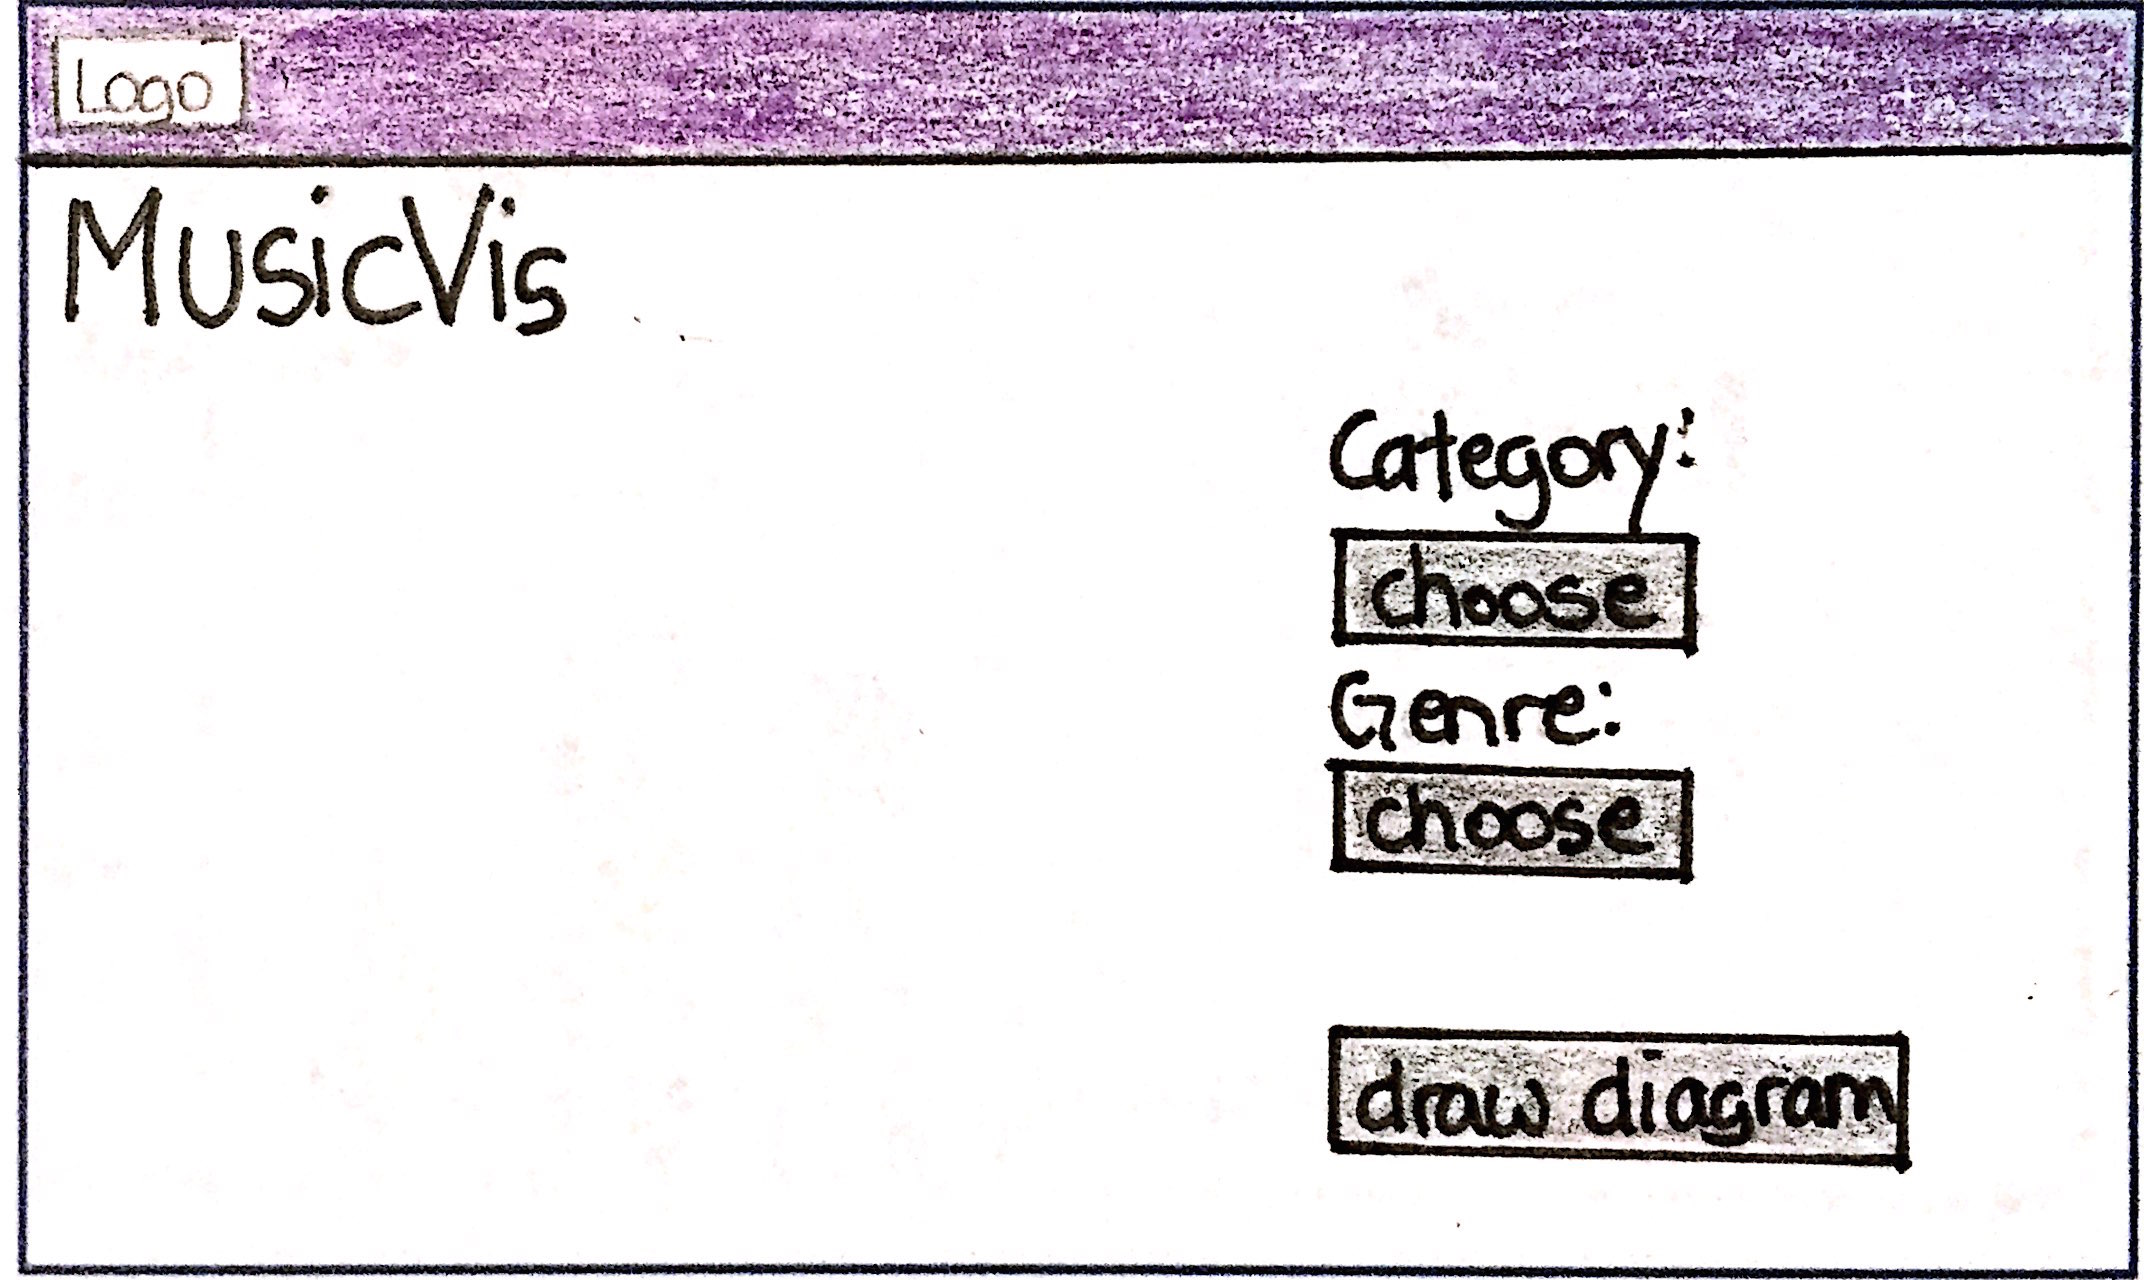 Logo
MusicVis
Category:
choose
Genre:
choose
draw diagram